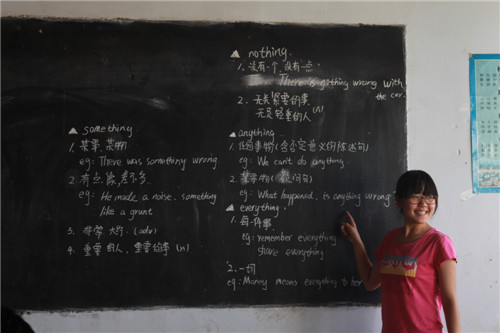 ▲ something
1. 某事, 某物
eg: There was something wrong
2. 有点像, 差不多
eg: He made a noise something
like a grunt
3. 非常 大约 (adv)
4. 重要的人, 重要的事 (n)
▲ nothing
1. 没有一个, 没有一点
There is nothing wrong with
the car.
2. 无关紧要的事
无足轻重的人 (n)
▲ anything
1. 任何事物 (含否定意义的陈述句)
eg: We can't do anything
2. 某事物 (疑问句)
eg: What happened, is anything wrong
▲ everything
1. 每件事
eg: remember everything
share everything
2. 一切
eg: Money means everything to her